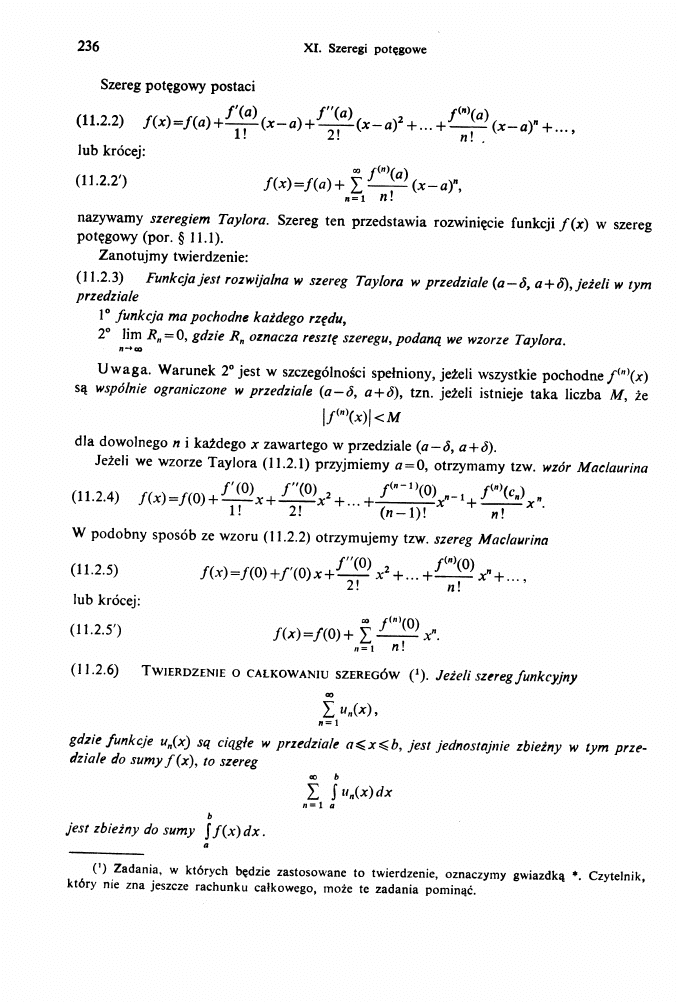 236 XI. Szeregi potęgowe
Szereg potęgowy postaci
(11.2.2) f(x)=f(a)+\frac{f'(a)}{1!}(x-a)+\frac{f''(a)}{2!}(x-a)^2+...+\frac{f^{(n)}(a)}{n!}(x-a)^n+...,
lub krócej:
(11.2.2') f(x)=f(a)+\sum_{n=1}^{∞}\frac{f^{(n)}(a)}{n!}(x-a)^n,
nazywamy szeregiem Taylora. Szereg ten przedstawia rozwinięcie funkcji f(x) w szereg
potęgowy (por. § 11.1).
Zanotujmy twierdzenie:
(11.2.3) Funkcja jest rozwijalna w szereg Taylora w przedziale (a−δ, a+δ), jeżeli w tym
przedziale
1° funkcja ma pochodne każdego rzędu,
2° \lim_{n→∞} R_n=0, gdzie R_n oznacza resztę szeregu, podaną we wzorze Taylora.
Uwaga. Warunek 2° jest w szczególności spełniony, jeżeli wszystkie pochodne f^{(n)}(x)
są wspólnie ograniczone w przedziale (a−δ, a+δ), tzn. jeżeli istnieje taka liczba M, że
|f^{(n)}(x)|<M
dla dowolnego n i każdego x zawartego w przedziale (a−δ, a+δ).
Jeżeli we wzorze Taylora (11.2.1) przyjmiemy a=0, otrzymamy tzw. wzór Maclaurina
(11.2.4) f(x)=f(0)+\frac{f'(0)}{1!}x+\frac{f''(0)}{2!}x^2+...+\frac{f^{(n-1)}(0)}{(n-1)!}x^{n-1}+\frac{f^{(n)}(c_n)}{n!}x^n.
W podobny sposób ze wzoru (11.2.2) otrzymujemy tzw. szereg Maclaurina
(11.2.5) f(x)=f(0)+f'(0)x+\frac{f''(0)}{2!}x^2+...+\frac{f^{(n)}(0)}{n!}x^n+...,
lub krócej:
(11.2.5') f(x)=f(0)+\sum_{n=1}^{∞}\frac{f^{(n)}(0)}{n!}x^n.
(11.2.6) TWIERDZENIE O CAŁKOWANIU SZEREGÓW (¹). Jeżeli szereg funkcyjny
\sum_{n=1}^{∞} u_n(x),
gdzie funkcje u_n(x) są ciągłe w przedziale a⩽x⩽b, jest jednostajnie zbieżny w tym prze-
dziale do sumy f(x), to szereg
\sum_{n=1}^{∞} \int_a^b u_n(x)dx
jest zbieżny do sumy \int_a^b f(x)dx.
(¹) Zadania, w których będzie zastosowane to twierdzenie, oznaczymy gwiazdką *. Czytelnik,
który nie zna jeszcze rachunku całkowego, może te zadania pominąć.